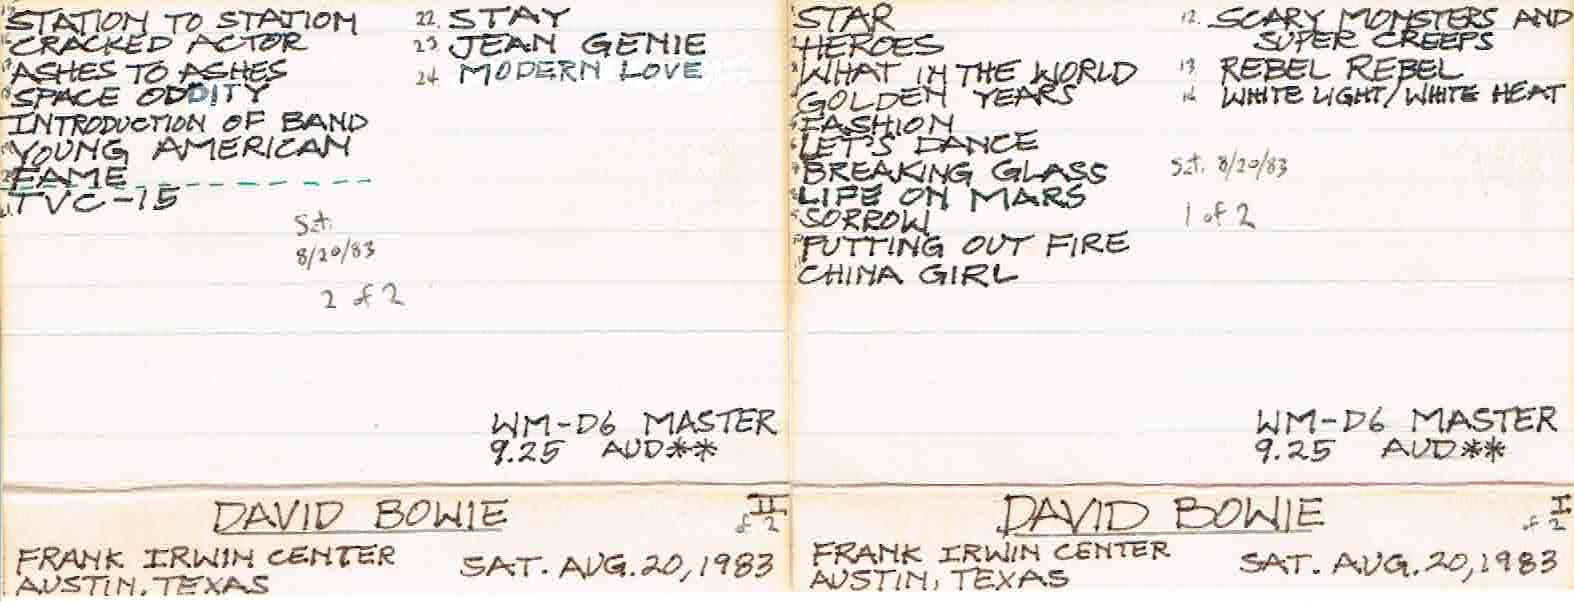 STATION TO STATION
CRACKED ACTOR
ASHES TO ASHES
SPACE ODDITY
INTRODUCTION OF BAND
YOUNG AMERICAN
FAME
TVC-15
22. STAY
23 JEAN GENIE
24. MODERN LOVE
Sat.
8/20/83
2 of 2
WM-D6 MASTER
9.25 AUD**
DAVID BOWIE
II
of 2
FRANK IRWIN CENTER
AUSTIN, TEXAS
SAT. AUG. 20, 1983
STAR
HEROES
WHAT IN THE WORLD
GOLDEN YEARS
FASHION
LET'S DANCE
BREAKING GLASS
LIFE ON MARS
SORROW
PUTTING OUT FIRE
CHINA GIRL
12. SCARY MONSTERS AND
SUPER CREEPS
13. REBEL REBEL
14. WHITE LIGHT/WHITE HEAT
Sat. 8/20/83
1 of 2
WM-D6 MASTER
9.25 AUD**
DAVID BOWIE
I
of 2
FRANK IRWIN CENTER
AUSTIN, TEXAS
SAT. AUG. 20, 1983